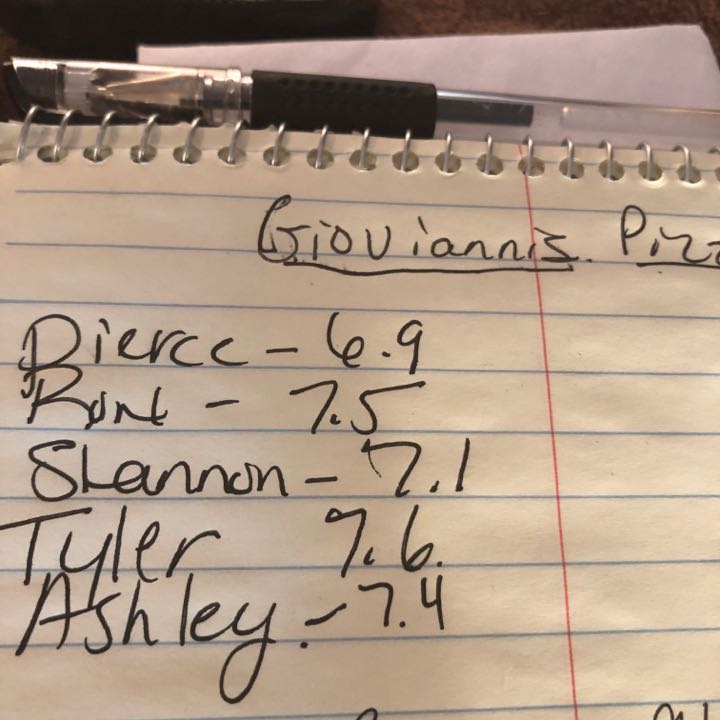 Gioviannis. Pizz
Pierce - 6.9
- 7.5
Shannon - 7.1
Tyler 7.6.
Ashley. - 7.4